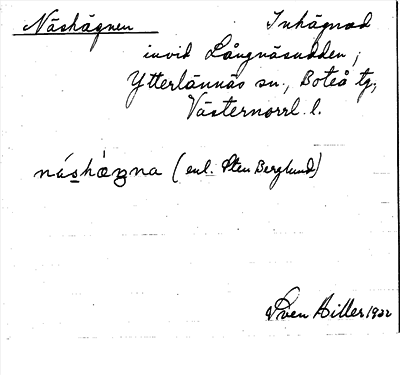 Näshägnen Inhägnad
invid Långnäsudden,
Ytterlännäs sn., Boteå tg,
Västernorrl. l.
(enl. Sten Berglund)
Sven Hiller 1922